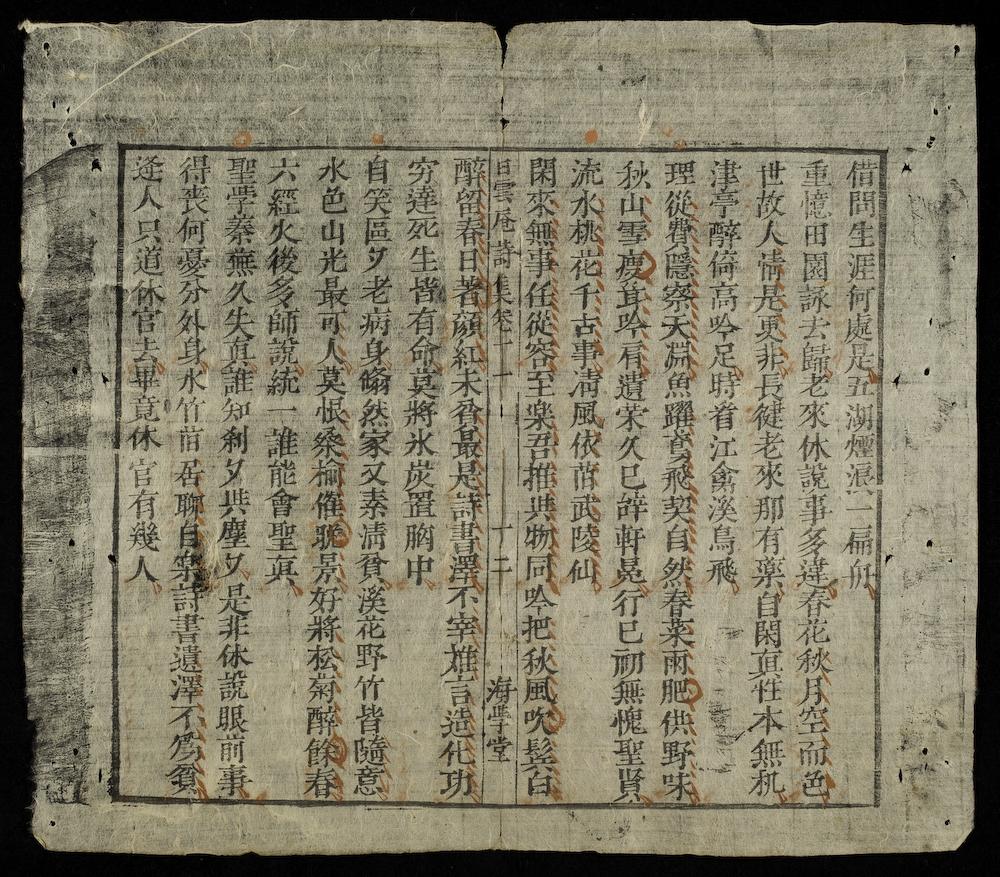 借問生涯何處是五湖煙浪一扁舟
重憶田園詠去歸老來休說事多違春花秋月空而色
世故人情是更非長健老來那有藥自閑真性本無机
津亭醉倚高吟足時看江禽溪鳥飛
理從費隱察天淵魚躍鳶飛契自然春菜雨肥供野味
秋山雪瘦耸吟肩遺荣久已辞軒冕行已初無愧聖賢
流水桃花千古事清風依旧武陵仙
閑來無事任從容至楽吾推共物同吟把秋風吹髪白
白雲庵詩集卷一 十二 海學堂
醉留春日著顔紅未貧最是詩書澤不宰难言造化功
穷達死生皆有命莫將氷炭置胸中
自笑區々老病身翛然家又素清貧溪花野竹皆隨意
水色山光最可人莫恨桑榆催晚景好將松菊醉餘春
六經火後多師說統一誰能會聖真
聖学秦蕪久失真誰知剎々共塵々是非休說眼前事
得丧何憂分外身水竹旧居聊自樂詩書遺澤不為貧
逢人只道休官去畢竟休官有幾人